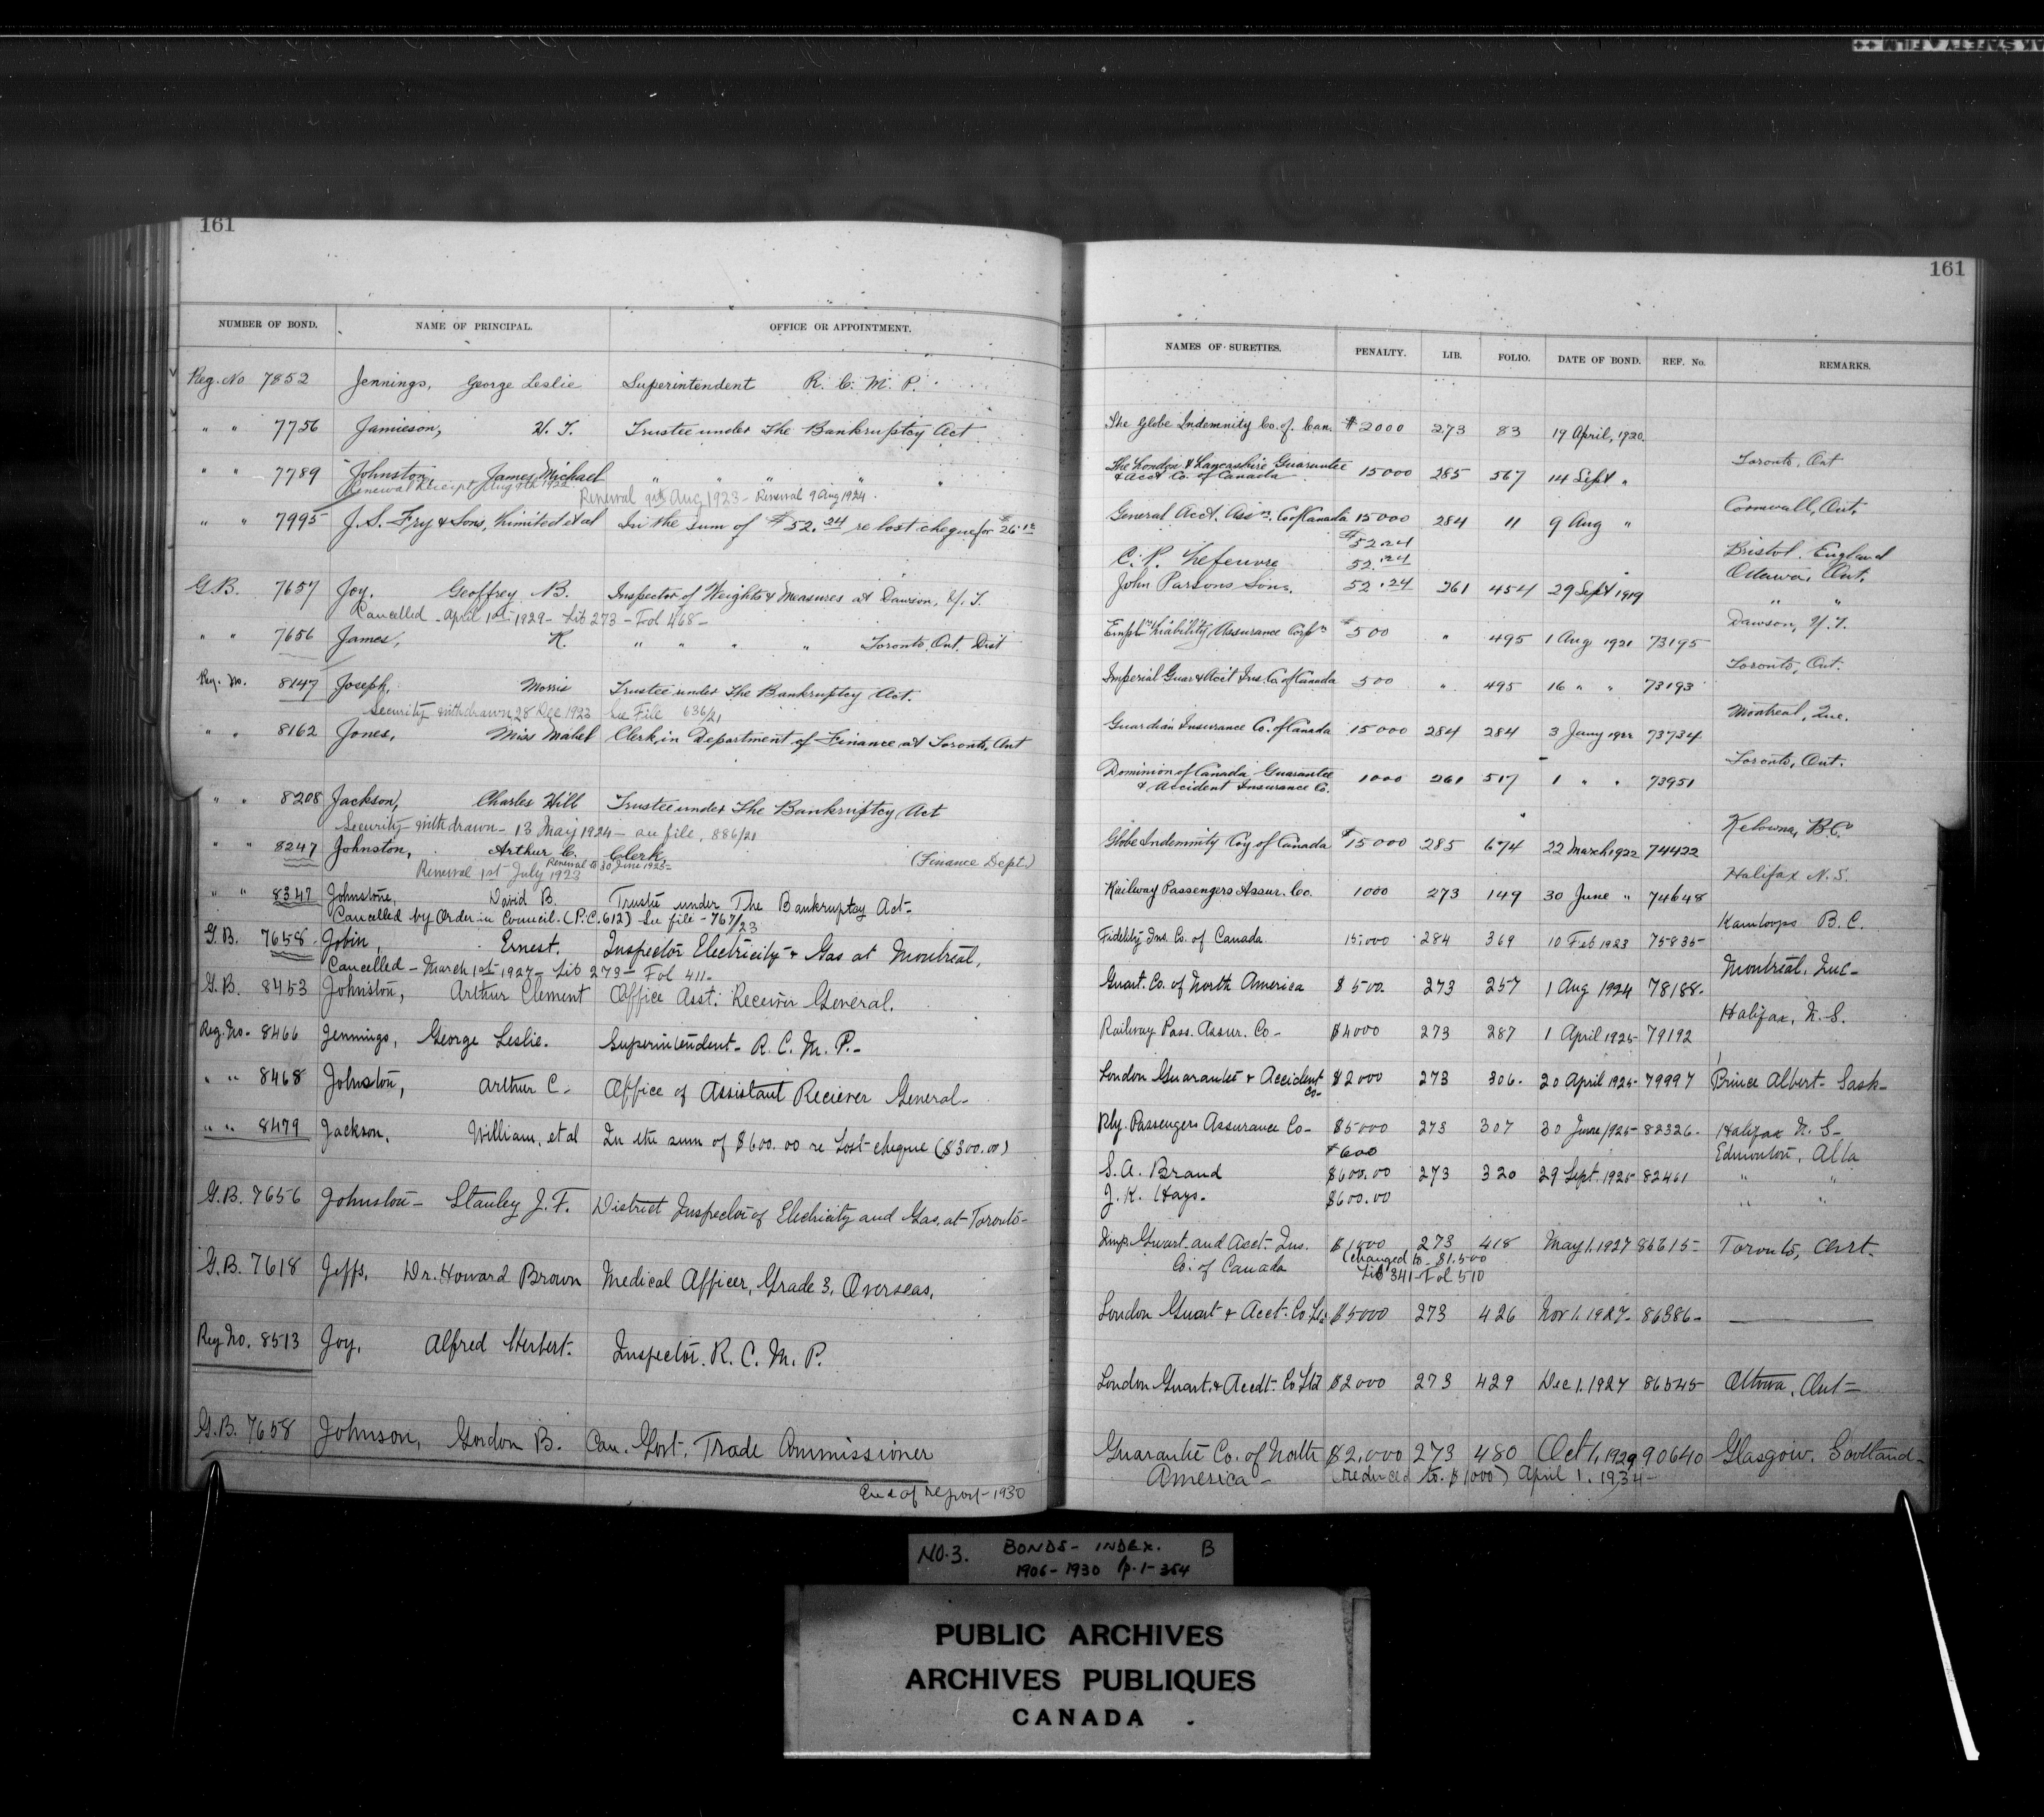 161
NUMBER OF BOND. NAME OF PRINCIPAL. OFFICE OR APPOINTMENT.
Reg. No 7852 Jennings, George Leslie Superintendent R. C. M. P.
" " 7756 Jamieson, Trustee under The Bankruptcy Act
" " 7789 Johnston, James Michael " " " " "
Renewal Receipt Aug 9th 1922 Renewal 9th Aug 1923 - Renewal 9 Aug 1924.
" " 7995 J. S. Fry & Sons, Limited et al In the sum of $52.24 re lost cheque for $26.12
G.B. 7657 Joy, Geoffrey B. Inspector of Weights & Measures at Dawson, Y. T.
Cancelled - April 1st 1929 - Lib 273 - Fol 468 -
" " 7656 James, K. " " " " Toronto, Ont. Dist
Reg. No. 8147 Joseph, Morris Trustee under The Bankruptcy Act.
Security withdrawn 28 Dec 1923 See File 636/21
" " 8162 Jones, Miss Mabel Clerk, in Department of Finance at Toronto, Ont
" " 8208 Jackson, Charles Hill Trustee under The Bankruptcy Act
Security withdrawn - 13 May 1924 - file, 886/21
" " 8247 Johnston, Arthur C. Clerk, (Finance Dept.)
Renewal 1st July 1923 Renewal to 30 June 1925 -
" " 8347 Johnstone, David B. Trustee under The Bankruptcy Act -
Cancelled by Order in Council. (P.C. 612) See file - 767/23
G.B. 7658 - Jobin, Ernest. Inspector Electricity & Gas at Montreal,
Cancelled - March 1st 1927 - Lib 273 - Fol 411 -
G.B. 8453 Johnston, Arthur Clement Office Asst. Receiver General.
Reg. No. 8466 Jennings, George Leslie. Superintendent - R. C. M. P. -
" " 8468 Johnston, Arthur C - Office of Assistant Reciever General -
" " 8479 Jackson, William, et al In the sum of $600.00 re Lost cheque ($300.00)
G.B. 7656 Johnston - Stanley J. F. District Inspector of Electricity and Gas, at Toronto -
G.B. 7618 Jeffs, Dr. Howard Brown Medical Officer, Grade 3, Overseas.
Reg No. 8513 Joy, Alfred Herbert. Inspector. R. C. M. P.
G.B. 7658 Johnson, Gordon B. Can. Govt. Trade Commissioner
End of report - 1930
161
NAMES OF SURETIES. PENALTY. LIB. FOLIO. DATE OF BOND. REF. No. REMARKS.
The Globe Indemnity Co. of Can. $2000 273 83 19 April, 1920.
Toronto, Ont
The London & Lancashire Guarantee
& Acct Co. of Canada 15000 285 567 14 Sept "
Cornwall, Ont.
General Acct. Assn. Co of Canada 15000 284 11 9 Aug "
$52.24 Bristol, England
C. P. Lefeuvre 52.24 Ottawa, Ont.
John Parsons Sons. 52.24 261 454 29 Sept 1919 " "
Dawson, Y. T.
Empl Liability Assurance Corpn $500 " 495 1 Aug 1921 73195
Toronto, Ont.
Imperial Guar & Acct Ins. Co. of Canada 500 " 495 16 " " 73193
Montreal, Que.
Guardian Insurance Co. of Canada 15000 284 284 3 Jany 1922 73734
Toronto, Ont.
Dominion of Canada Guarantee
& Accident Insurance Co. 1000 261 517 1 " " 73951
Kelowna, B.C.
Globe Indemnity Coy of Canada $15000 285 674 22 March 1922 74422
Halifax N. S.
Railway Passengers Assur. Co. 1000 273 149 30 June " 74648
Kamloops B. C.
Fidelity Ins. Co. of Canada 15,000 284 369 10 Feb 1923 75835
Montreal, Que -
Guart. Co. of North America $500. 273 257 1 Aug 1924 78188.
Halifax, N. S.
Railway Pass. Assur. Co - $4000 273 287 1 April 1925 - 79192
London Guarantee & Accident Co - $2000 273 306. 20 April 1925 - 79997 Prince Albert - Sask -
Rly. Passengers Assurance Co - $5000 273 307 30 June 1925 - 82326. Halifax N. S -
$600 Edmonton, Alta
S. A. Brand $600.00 273 320 29 Sept. 1925 - 82461 " "
J. K. Hays. $600.00 " "
Imp. Guart. and Acct. Ins. $1000 273 418 May 1, 1927 86615 - Toronto, Ont.
Co. of Canada (changed to - $1.500
Lib 341 - Fol 510
London Guart & Acct. Co Ltd $5000 273 426 Nov 1. 1927 - 86386 -
London Guart. & Accdt. Co Ltd $2000 273 429 Dec 1. 1927 86545 Ottawa, Ont -
Guarantee Co. of North $2,000 273 480 Oct 1, 1929 90640 Glasgow. Scotland -
America - (reduced to $1000) April 1. 1934 -
NO. 3. BONDS - INDEX. B
1906 - 1930 p. 1 - 364
PUBLIC ARCHIVES
ARCHIVES PUBLIQUES
CANADA